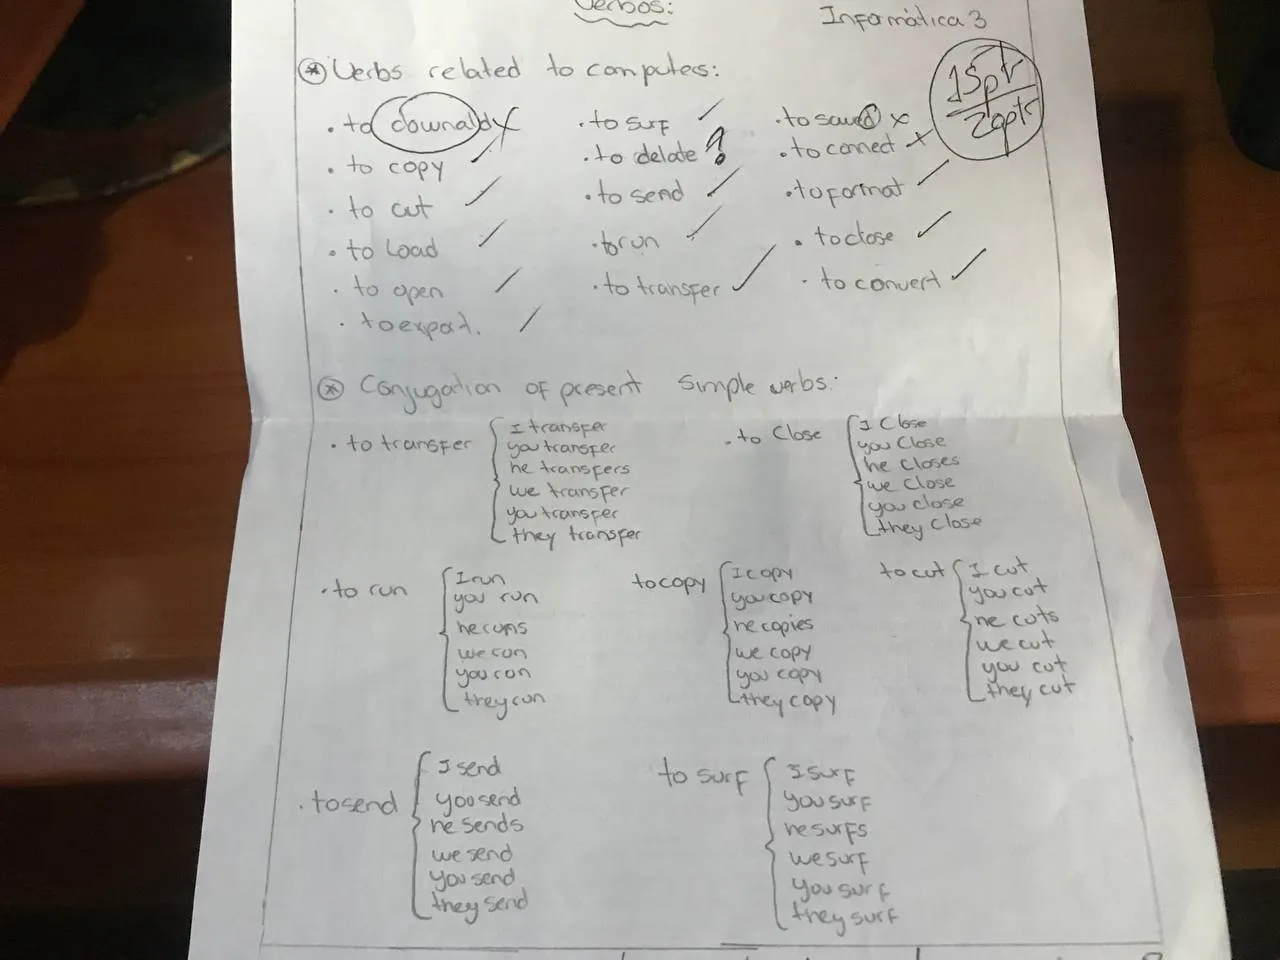 Verbos:
Informática 3
Verbs related to computers:
15pts
20pts
· to downald x
· to copy
· to cut
· to load
· to open
· to export.
· to surf
· to delate ?
· to send
· to run
· to transfer
· to saved x
· to connect x
· to format
· to close
· to convert
Conjugation of present simple verbs:
· to transfer
I transfer
you transfer
he transfers
we transfer
you transfer
they transfer
· to Close
I Close
you Close
he closes
we close
you close
they close
· to run
I run
you run
he runs
we run
you run
they run
to copy
I copy
you copy
he copies
we copy
you copy
they copy
to cut
I cut
you cut
he cuts
we cut
you cut
they cut
· to send
I send
you send
he sends
we send
you send
they send
to surf
I surf
you surf
he surfs
we surf
you surf
they surf